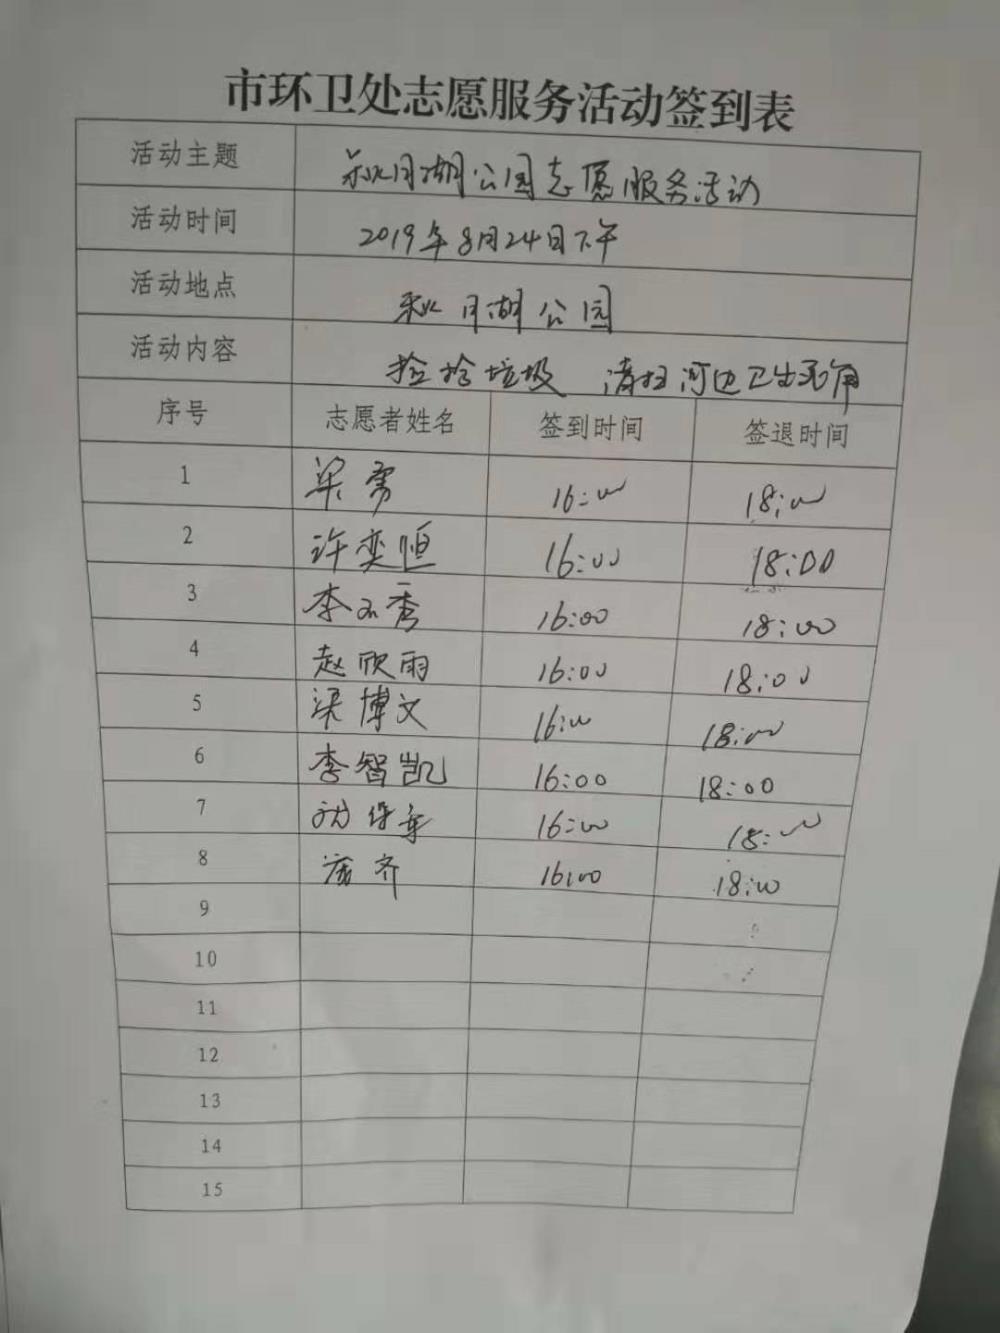 市环卫处志愿服务活动签到表
活动主题 秋月湖公园志愿服务活动
活动时间 2019年8月24日下午
活动地点 秋月湖公园
活动内容 捡拾垃圾 清扫河边卫生死角
序号 志愿者姓名 签到时间 签退时间
1 梁勇 16:00 18:00
2 许奕恒 16:00 18:00
3 李 秀 16:00 18:00
4 赵欣雨 16:00 18:00
5 梁博文 16:00 18:00
6 李智凯 16:00 18:00
7 16:00 18:00
8 庞齐 16:00 18:00
9
10
11
12
13
14
15